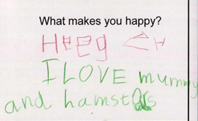 What makes you happy?
I LOVE mummy
and hamsters